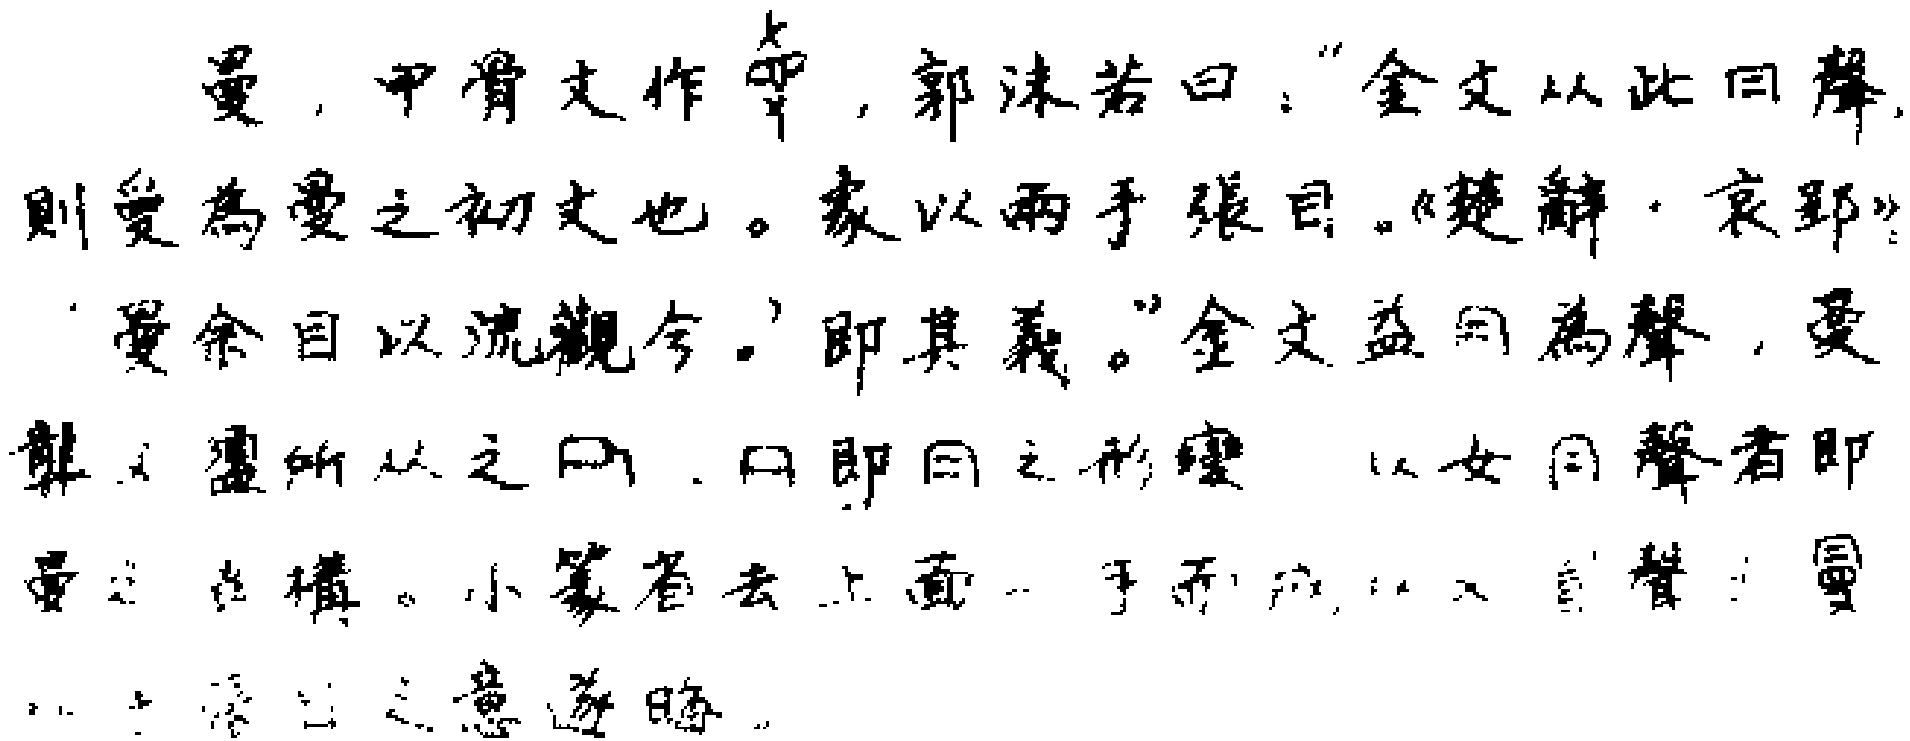 曼，甲骨文作，郭沫若曰：“金文从此冃聲，
則㕢為曼之初文也。象以兩手張目。《楚辭·哀郢》：
‘曼余目以流觀兮。’即其義。”金文益冃為聲，曼
龏父盨所从之冃，即冃之形變 从女冃聲者即
曼之 構。小篆省去上面一手而成从又冃聲之曼
从手張目之意遂晦。